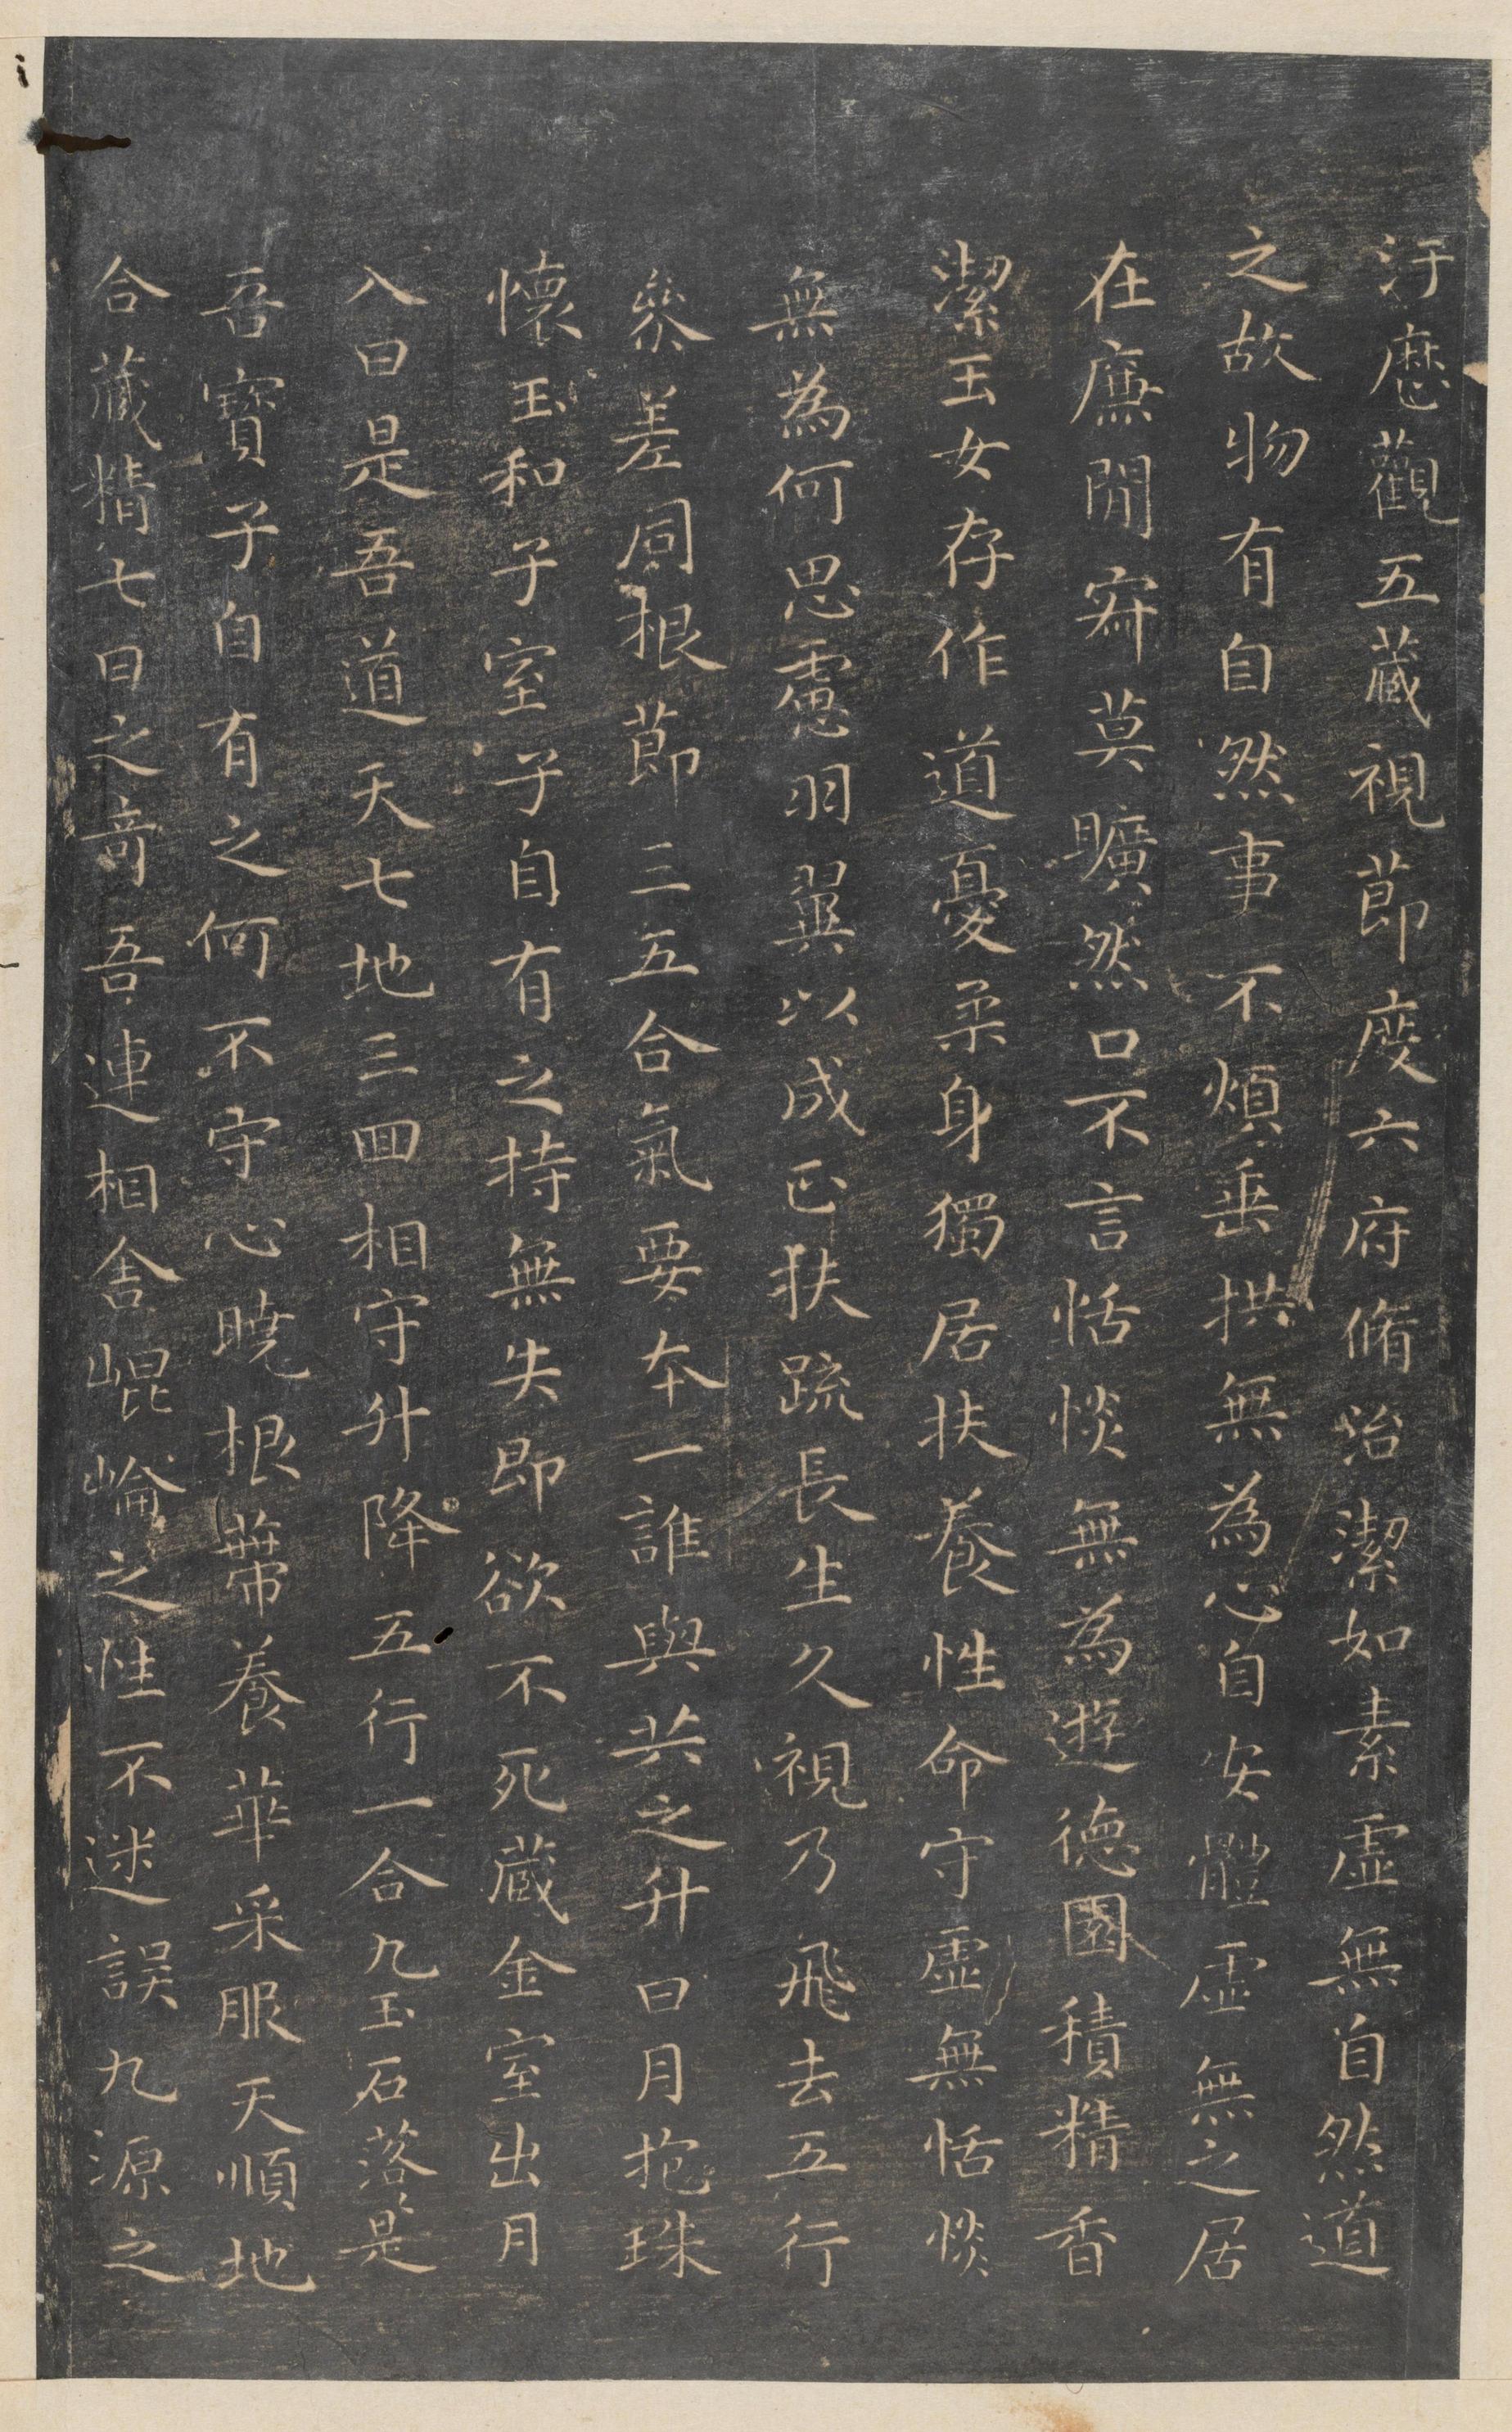 汙歷觀五藏視節度六府脩治潔如素虛無自然道
之故物有自然事不煩垂拱無為心自安體虛無之居
在廉閒寂莫曠然口不言恬惔無為遊德園積精香
潔玉女存作道憂柔身獨居扶養性命守虛無恬惔
無為何思慮羽翼以成正扶疏長生久視乃飛去五行
參差同根節三五合氣要本一誰與共之升日月抱珠
懷玉和子室子自有之持無失即欲不死藏金室出月
入日是吾道天七地三回相守升降五行一合九玉石落是
吾寶子自有之何不守心曉根蔕養華采服天順地
合藏精七日之奇吾連相舍崐崘之性不迷誤九源之